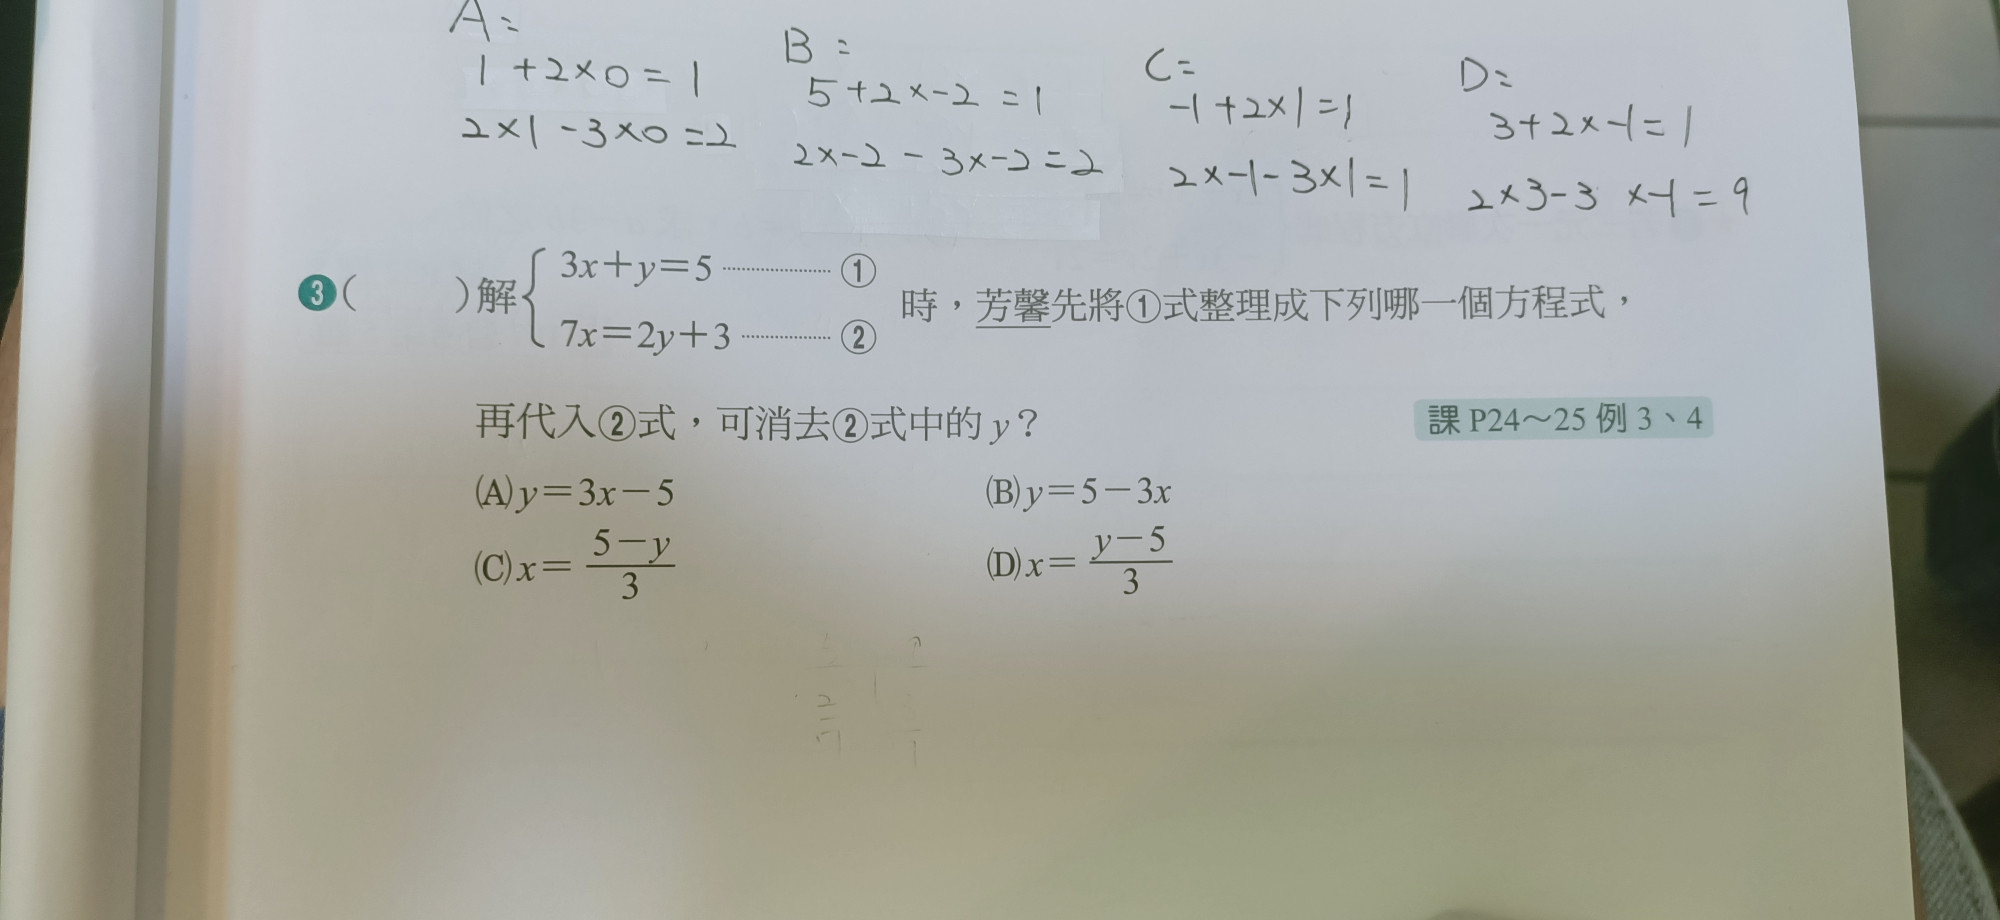 A=
1+2×0=1
2×1-3×0=2
B=
5+2×-2=1
2×-2-3×-2=2
C=
-1+2×1=1
2×-1-3×1=1
D=
3+2×-1=1
2×3-3×-1=9
3( )解{3x+y=5 ………… ①
7x=2y+3 ………… ②
時，芳馨先將①式整理成下列哪一個方程式，
再代入②式，可消去②式中的y？
課 P24～25 例 3、4
(A)y=3x-5 (B)y=5-3x
(C)x=(5-y)/3 (D)x=(y-5)/3